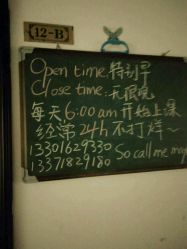 12-B
Open time.特别早
Close time.无限晚
每天6:00am开始上课
经常24h不打烊~
13301629330
13371829180
So call me may